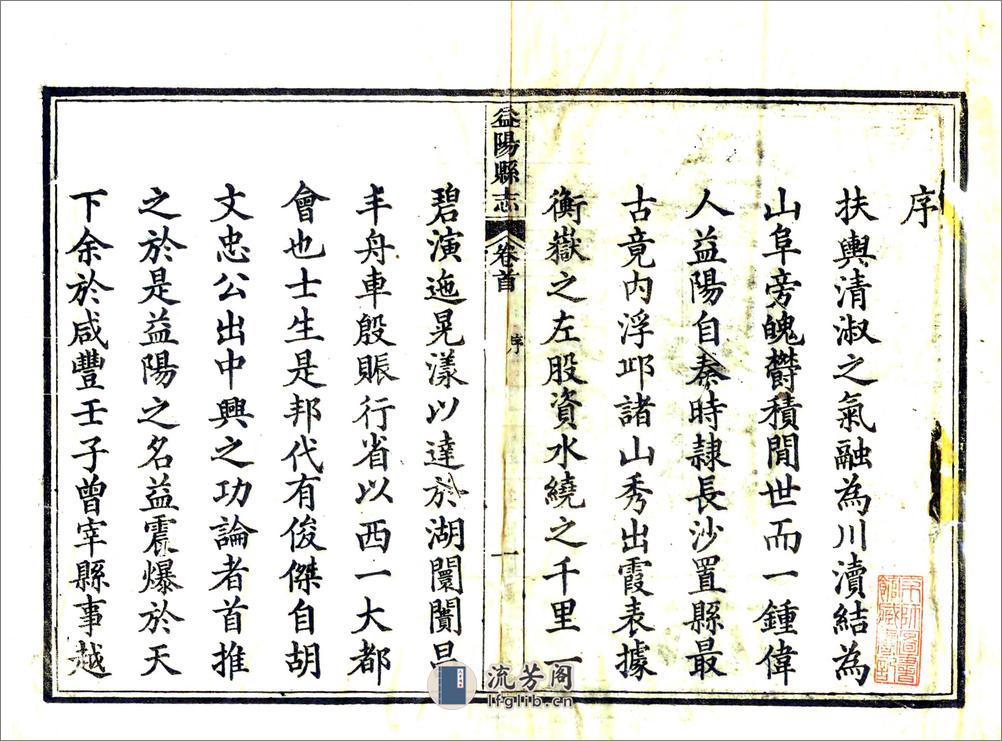 序
扶輿清淑之氣融為川瀆結為
山阜旁魄欝積閒世而一鍾偉
人益陽自秦時隷長沙置縣最
古竟内浮邱諸山秀出霞表據
衡嶽之左股資水繞之千里一
益陽縣志 卷首 序 一
碧演迤晃漾以達於湖闤闠
丰舟車殷賑行省以西一大都
會也士生是邦代有俊傑自胡
文忠公出中興之功論者首推
之於是益陽之名益震爆於天
下余於咸豐壬子曾宰縣事越
流芳阁
lfglib.cn